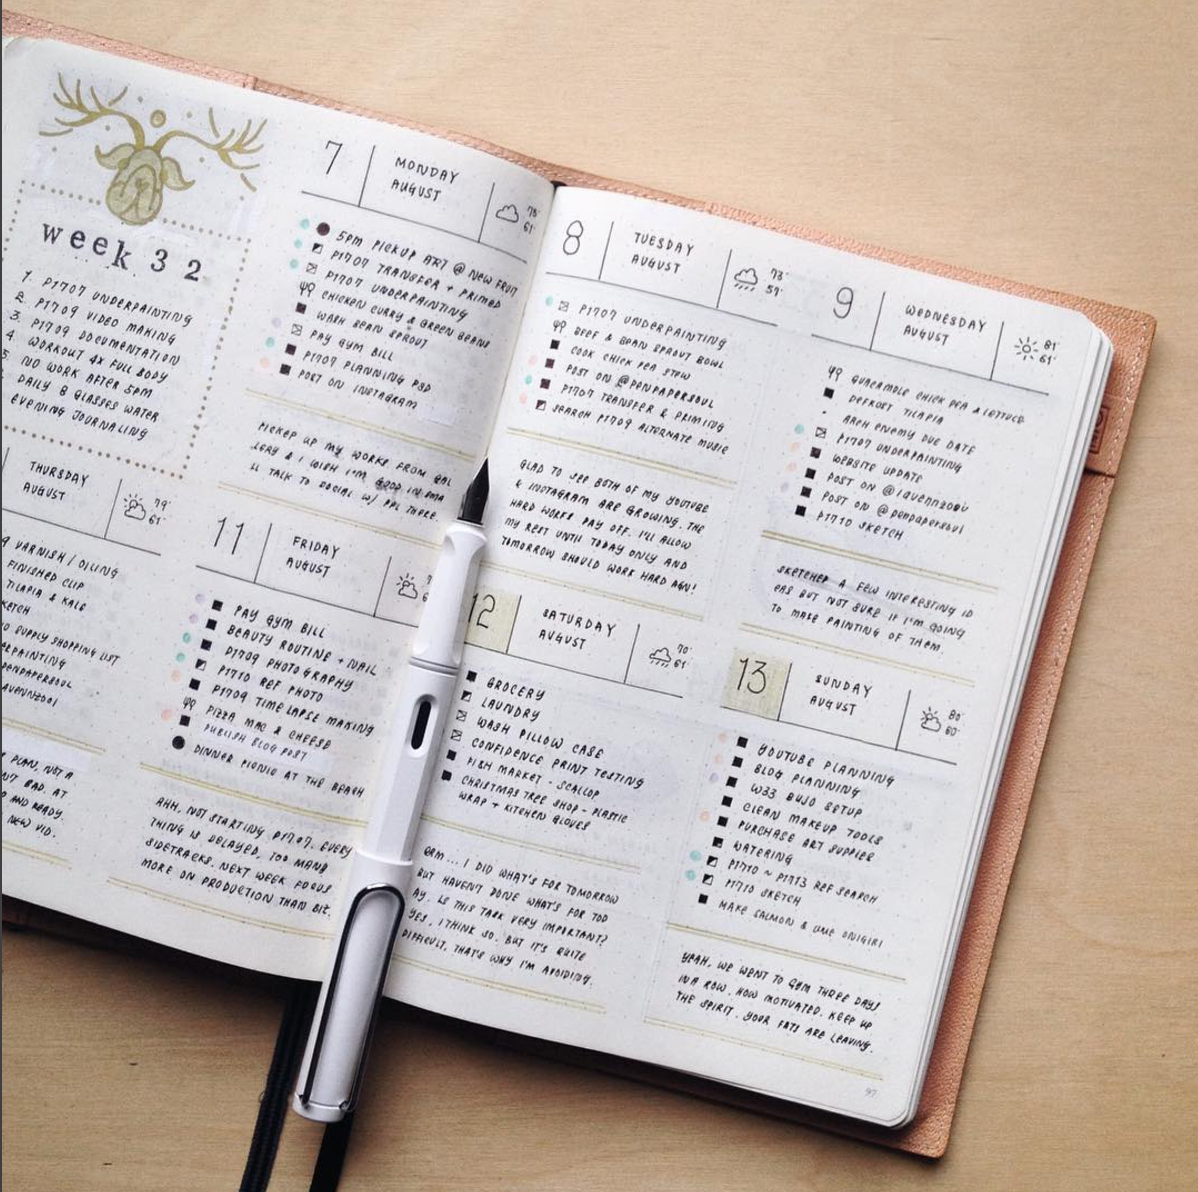 week 32
1. P1707 UNDERPAINTING
2. P1709 VIDEO MAKING
3. P1709 DOCUMENTATION
4. WORKOUT 4X FULL BODY
5. NO WORK AFTER 5PM
DAILY 8 GLASSES WATER
EVENING JOURNALING
7
MONDAY
AUGUST
78°
61°
5PM PICKUP ART @ NEW FRUIT
P1707 TRANSFER + PRIMED
P1707 UNDERPAINTING
CHICKEN CURRY & GREEN BEANS
WASH BEAN SPROUT
PAY GYM BILL
P1707 PLANNING PSD
POST ON INSTAGRAM
PICKED UP MY WORKS FROM GAL
LERY & I WISH I'M GOOD IN SMA
LL TALK TO SOCIAL W/ PPL THERE.
8
TUESDAY
AUGUST
73°
59°
P1707 UNDERPAINTING
BEEF & BEAN SPROUT BOWL
COOK CHICK PEA STEW
POST ON @PENPAPERSOUL
P1707 TRANSFER & PRIMING
SEARCH P1709 ALTERNATE MUSIC
GLAD TO SEE BOTH OF MY YOUTUBE
& INSTAGRAM ARE GROWING. THE
HARD WORKS PAY OFF. I'LL ALLOW
MY REST UNTIL TODAY ONLY AND
TOMORROW SHOULD WORK HARD AGN!
9
WEDNESDAY
AUGUST
81°
61°
GUACAMOLE CHICK PEA & LETTUCE
DEFROST TILAPIA
ARCH ENEMY DUE DATE
P1707 UNDERPAINTING
WEBSITE UPDATE
POST ON @lavennz001
POST ON @penpapersoul
P1710 SKETCH
SKETCHED A FEW INTERESTING ID
EAS BUT NOT SURE IF I'M GOING
TO MAKE PAINTING OF THEM.
THURSDAY
AUGUST
79°
61°
VARNISH / OILING
FINISHED CLIP
TILAPIA & KALE
KETCH
SUPPLY SHOPPING LIST
ERPAINTING
PENPAPERSOUL
AVENNZ001
PLAN, NOT A
BAD. AT
AND READY.
NEW VID.
11
FRIDAY
AUGUST
PAY GYM BILL
BEAUTY ROUTINE + NAIL
P1709 PHOTOGRAPHY
P1710 REF PHOTO
P1709 TIMELAPSE MAKING
PIZZA MAC & CHEESE
PUBLISH BLOG POST
DINNER PICNIC AT THE BEACH
AHH, NOT STARTING P1707. EVERY
THING IS DELAYED, TOO MANY
SIDETRACKS. NEXT WEEK FOCUS
MORE ON PRODUCTION THAN BIZ.
12
SATURDAY
AUGUST
70°
61°
GROCERY
LAUNDRY
WASH PILLOW CASE
CONFIDENCE PRINT TESTING
FISH MARKET - SCALLOP
CHRISTMAS TREE SHOP - PLASTIC
WRAP + KITCHEN GLOVES
ERM... I DID WHAT'S FOR TOMORROW
BUT HAVEN'T DONE WHAT'S FOR TOD
AY. IS THIS TASK VERY IMPORTANT?
YES, I THINK SO. BUT IT'S QUITE
DIFFICULT, THAT'S WHY I'M AVOIDING.
13
SUNDAY
AUGUST
80°
60°
YOUTUBE PLANNING
BLOG PLANNING
W33 BUJO SETUP
CLEAN MAKEUP TOOLS
PURCHASE ART SUPPIES
WATERING
P1710 ~ P1713 REF SEARCH
P1710 SKETCH
MAKE SALMON & UME ONIGIRI
YEAH, WE WENT TO GYM THREE DAYS
IN A ROW. HOW MOTIVATED. KEEP UP
THE SPIRIT. YOUR FATS ARE LEAVING.
97